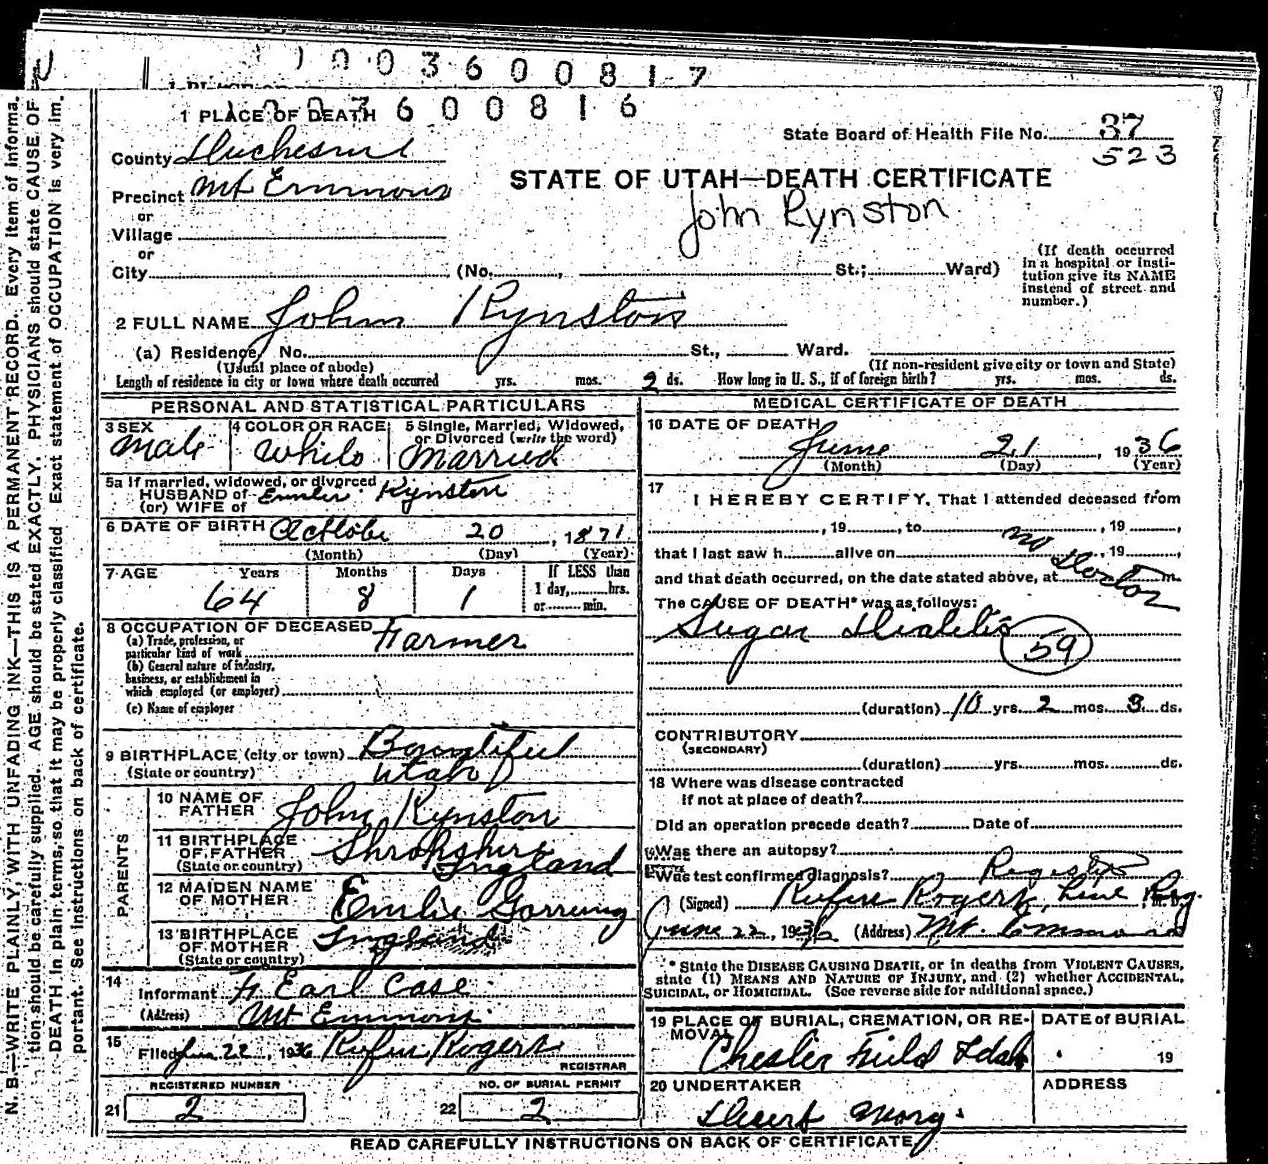 1003600817
1 PLACE OF DEATH 1003600816
State Board of Health File No. 37
523
County Duchesne
Precinct Mt Emmons
STATE OF UTAH—DEATH CERTIFICATE
John Rynston
or
Village
or
City (No. , St.; Ward)
(If death occurred in a hospital or institution give its NAME instead of street and number.)
2 FULL NAME John Rynston
(a) Residence, No. St., Ward.
(Usual place of abode) (If non-resident give city or town and State)
Length of residence in city or town where death occurred yrs. mos. 2 ds. How long in U. S., if of foreign birth? yrs. mos. ds.
PERSONAL AND STATISTICAL PARTICULARS
3 SEX 4 COLOR OR RACE 5 Single, Married, Widowed, or Divorced (write the word)
Male White Married
5a If married, widowed, or divorced
HUSBAND of Kynston
(or) WIFE of
6 DATE OF BIRTH October 20, 1871
(Month) (Day) (Year)
7 AGE Years Months Days If LESS than
1 day, hrs.
or min.
64 8 1
8 OCCUPATION OF DECEASED Farmer
(a) Trade, profession, or
particular kind of work
(b) General nature of industry,
business, or establishment in
which employed (or employer)
(c) Name of employer
9 BIRTHPLACE (city or town) Bountiful
(State or country) Utah
PARENTS
10 NAME OF FATHER John Kynston
11 BIRTHPLACE OF FATHER Shropshire
(State or country) England
12 MAIDEN NAME OF MOTHER Emilie
13 BIRTHPLACE OF MOTHER England
(State or country)
14
Informant Earl Case
(Address) Mt Emmons
15
Filed Jun 22, 1936 Rufus Rogers
REGISTRAR
REGISTERED NUMBER NO. OF BURIAL PERMIT
21 2 22 2
MEDICAL CERTIFICATE OF DEATH
16 DATE OF DEATH
June 21, 1936
(Month) (Day) (Year)
17
I HEREBY CERTIFY, That I attended deceased from
, 19 , to , 19 ,
that I last saw h alive on , 19 ,
no Doctor
and that death occurred, on the date stated above, at m.
The CAUSE OF DEATH* was as follows:
Sugar Diabetis
59
(duration) 10 yrs. 2 mos. 3 ds.
CONTRIBUTORY
(SECONDARY)
(duration) yrs. mos. ds.
18 Where was disease contracted
if not at place of death?
Did an operation precede death? Date of
Was there an autopsy?
Was test confirmed diagnosis?
(Signed) Rufus Rogers,
June 22, 1936 (Address) Mt. Emmons
* State the DISEASE CAUSING DEATH, or in deaths from VIOLENT CAUSES,
state (1) MEANS AND NATURE OF INJURY, and (2) whether ACCIDENTAL,
SUICIDAL, or HOMICIDAL. (See reverse side for additional space.)
19 PLACE OF BURIAL, CREMATION, OR REMOVAL DATE of BURIAL
Chester Field Idah 19
20 UNDERTAKER ADDRESS
READ CAREFULLY INSTRUCTIONS ON BACK OF CERTIFICATE
N. B.—WRITE PLAINLY, WITH UNFADING INK—THIS IS A PERMANENT RECORD. Every item of informa-
tion should be carefully supplied. AGE should be stated EXACTLY. PHYSICIANS should state CAUSE OF
DEATH in plain terms, so that it may be properly classified. Exact statement of OCCUPATION is very im-
portant. See instructions on back of certificate.